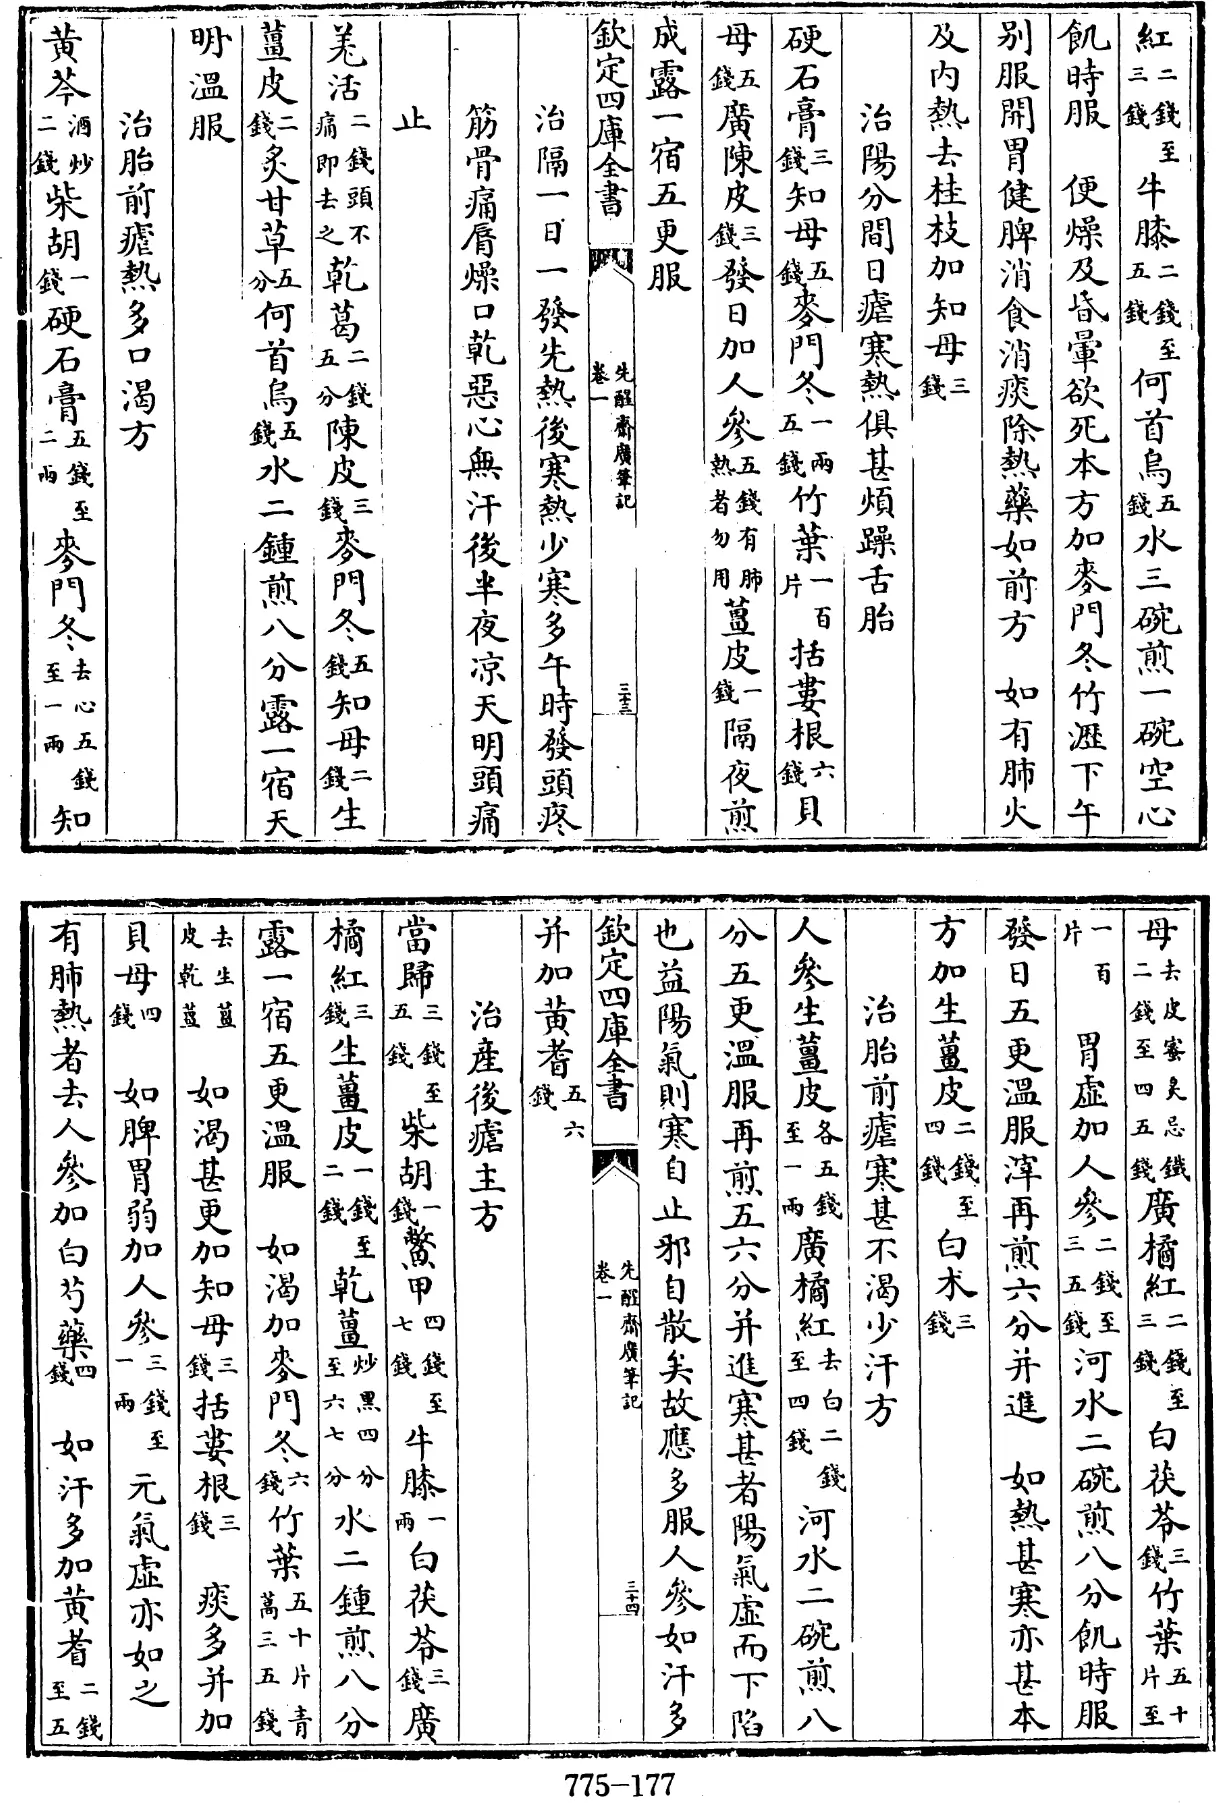 紅二錢至三錢牛膝二錢至五錢何首烏五錢水三碗煎一碗空心
飢時服　便燥及昏暈欲死本方加麥門冬竹瀝下午
别服開胃健脾消食消痰除熱藥如前方　如有肺火
及内熱去桂枝加知母三錢
治陽分間日瘧寒熱俱甚煩躁舌胎
硬石膏三錢知母五錢麥門冬一兩五錢竹葉一百片括蔞根六錢貝
母五錢廣陳皮三錢發日加人參五錢有肺熱者勿用薑皮一錢隔夜煎
成露一宿五更服
欽定四庫全書
先醒齋廣筆記
卷一
三十三
治隔一日一發先熱後寒熱少寒多午時發頭疼
筋骨痛脣燥口乾惡心無汗後半夜凉天明頭痛
止
羌活二錢頭不痛即去之乾葛二錢五分陳皮三錢麥門冬五錢知母二錢生
薑皮二錢炙甘草五分何首烏五錢水二鍾煎八分露一宿天
明溫服
治胎前瘧熱多口渴方
黄芩酒炒二錢柴胡一錢硬石膏五錢至二兩麥門冬去心五錢至一兩知
母去皮蜜炙忌鐵二錢至四五錢廣橘紅二錢至三錢白茯苓三錢竹葉五十片至
一百片　胃虛加人參二錢至三五錢河水二碗煎八分飢時服
發日五更溫服滓再煎六分并進　如熱甚寒亦甚本
方加生薑皮二錢至四錢白术三錢
治胎前瘧寒甚不渴少汗方
人參生薑皮各五錢至一兩廣橘紅去白二錢至四錢河水二碗煎八
分五更溫服再煎五六分并進寒甚者陽氣虛而下陷
也益陽氣則寒自止邪自散矣故應多服人參如汗多
欽定四庫全書
先醒齋廣筆記
卷一
三十四
并加黄耆五六錢
治産後瘧主方
當歸三錢至五錢柴胡一錢鱉甲四錢至七錢牛膝一兩白茯苓三錢廣
橘紅三錢生薑皮一錢至二錢乾薑炒黒四分至六七分水二鍾煎八分
露一宿五更溫服　如渴加麥門冬六錢竹葉五十片青蒿三五錢
去生薑皮乾薑　如渴甚更加知母三錢括蔞根三錢　痰多并加
貝母四錢　如脾胃弱加人參三錢至一兩元氣虛亦如之
有肺熱者去人參加白芍藥四錢　如汗多加黄耆二錢至五
775-177